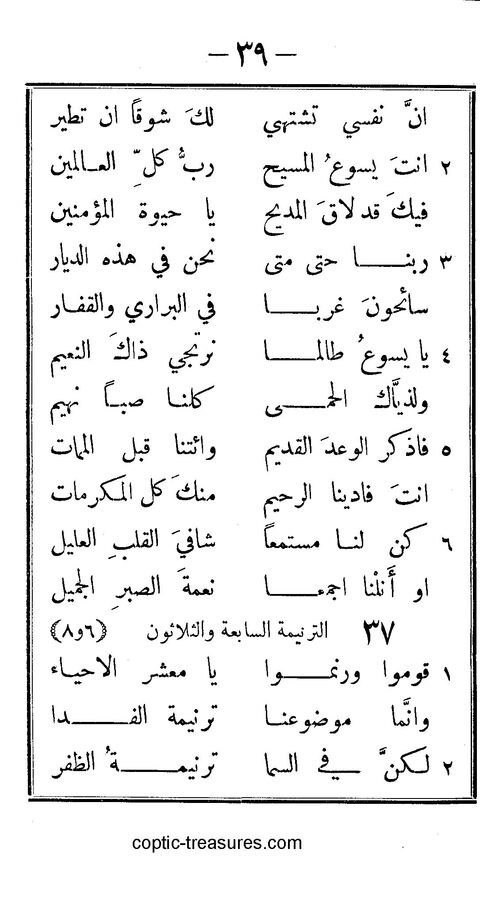 — ٣٩ —
انَّ نفسي تشتهي لكَ شوقًا ان تطير
٢ انتَ يسوعُ المسيح ربُّ كلِّ العـالمين
فيكَ قد لاقَ المديح يا حيوة المؤمنين
٣ ربنـــا حتى متى نحن في هذه الديار
سائحونَ غربـــا في البراري والقفـار
٤ يا يسوعُ طالمـــا نرتجي ذاكَ النعيم
ولذيَّاك الحمـــى كلنـا صبـاً نهيم
٥ فاذكر الوعدَ القديم وائتنا قبل الممات
انتَ فادينا الرحيم منكَ كل المكرمات
٦ كن لنـا مستمعاً شافيَ القلبِ العليل
او أَنلْنا اجمعـــا نعمةَ الصبرِ الجميل
٣٧ الترنيمة السابعة والثلاثون (٦و٨)
١ قوموا ورنمـــوا يا معشر الاحيـاء
وانَّما موضوعنـا ترنيمة الفـــدا
٢ لـكنَّ في السما ترنيمـــةُ الظفر
coptic-treasures.com